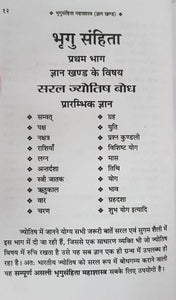 १२
भृगुसंहिता महाशास्त्र (ज्ञान खण्ड)
भृगु संहिता
प्रथम भाग
ज्ञान खण्ड के विषय
सरल ज्योतिष बोध
प्रारम्भिक ज्ञान
सम्वत् ग्रह
पक्ष युति
नक्षत्र प्रश्न कुण्डली
राशियाँ विशिष्ट योग
लग्न मास
अन्तर्दशा तिथि
स्त्री जातक योग
ऋतुकाल भाव
वार ग्रहदशा
चरण शुभ योग इत्यादि
ज्योतिष में जानने योग्य सभी जरूरी बातें सरल एवं सुगम शैली में
इस भाग में दी जा रही हैं, जिससे एक साधारण व्यक्ति भी जो ज्योतिष
विषय में रुचि रखता है उसे यह सब ज्ञान एक ही ग्रन्थ में उपलब्ध हो
जाए। अतः भारतीय ज्योतिष को सरल रूप में बोधगम्य कराने वाली
यह सम्पूर्ण असली भृगुसंहिता महाशास्त्र सबके लिए उपयोगी है।